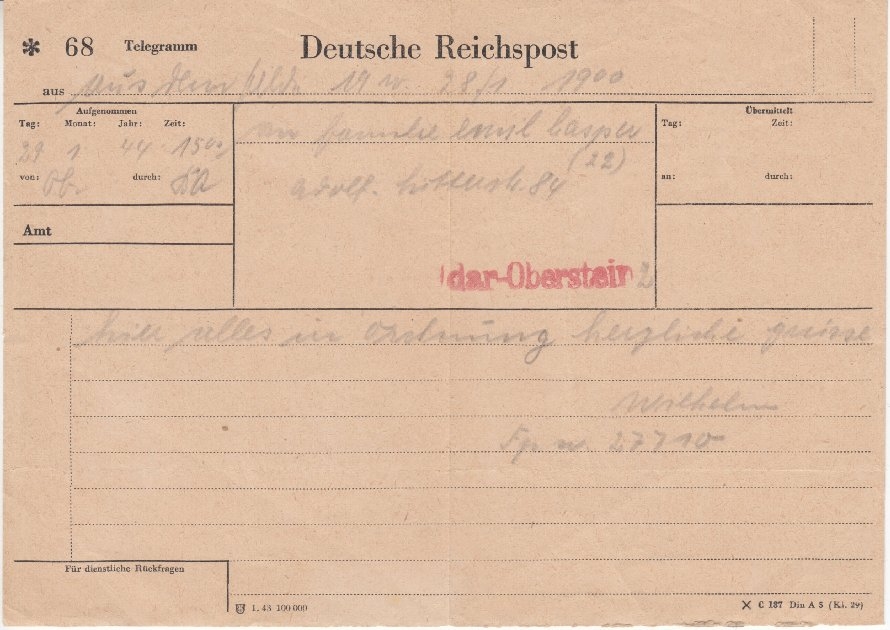 * 68 Telegramm Deutsche Reichspost
aus aus dem felde 19 w. 28/1 1900
Aufgenommen
Tag: Monat: Jahr: Zeit:
29 1 44 1500
von: durch:
Amt
an familie emil casper
(22)
adolf-hitlerstr. 84
Idar-Oberstein 2
Übermittelt
Tag: Zeit:
an: durch:
hier alles in ordnung herzliche grüsse
Wilhelm
Fp n. 27710
Für dienstliche Rückfragen
1. 43 100 000
C 187 Din A 5 (Kl. 29)